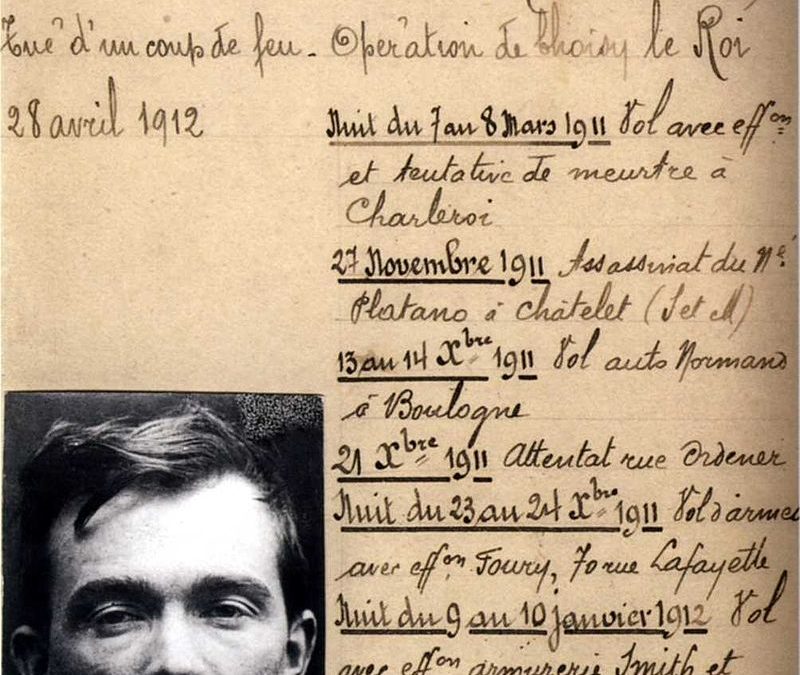 Tué d'un coup de feu - Opération de Choisy le Roi
28 avril 1912
Nuit du 7 au 8 Mars 1911 Vol avec eff^on
et tentative de meurtre à
Charleroi
27 Novembre 1911 Assassinat du N^é
Platano à Châtelet (S et M)
13 au 14 X^bre 1911 Vol auto Normand
à Boulogne
21 X^bre 1911 Attentat rue Ordener
Nuit du 23 au 24 X^bre 1911 Vol d'armes
avec eff^on Foury, 70 rue Lafayette
Nuit du 9 au 10 janvier 1912 Vol
avec eff^on armurerie Smith et